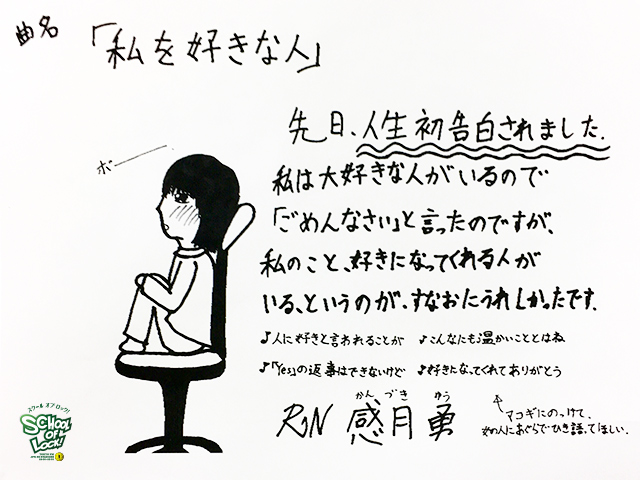 曲名
「私を好きな人」
先日、人生初告白されました.
ボー
私は大好きな人がいるので
「ごめんなさい」と言ったのですが、
私のこと、好きになってくれる人が
いる、というのが、すなおにうれしかったです.
♪人に好きと言われることが ♪こんなにも温かいこととはね
♪「Yes」の返事はできないけど ♪好きになってくれてありがとう
かんづきゆう
RN 感月勇
アコギにのっけて、
の人にあぐらでひき語ってほしい.
スクール オブ ロック!
SCHOOL OF LOCK!